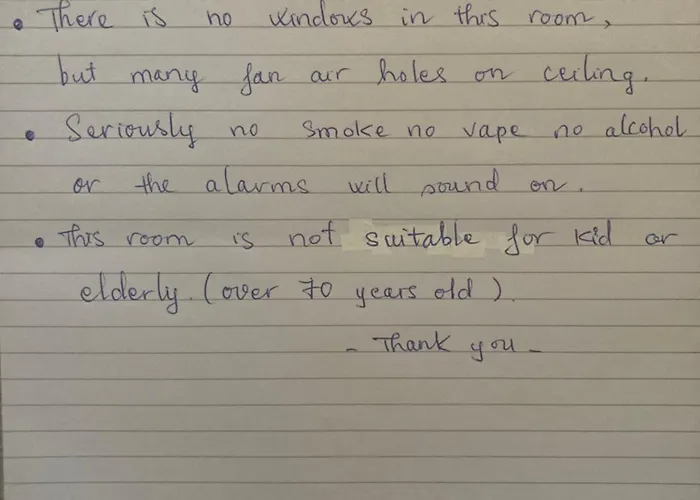 • There is no windows in this room,
but many fan air holes on ceiling.
• Seriously no smoke no vape no alcohol
or the alarms will sound on.
• This room is not suitable for kid or
elderly. (over 70 years old).
- Thank you -